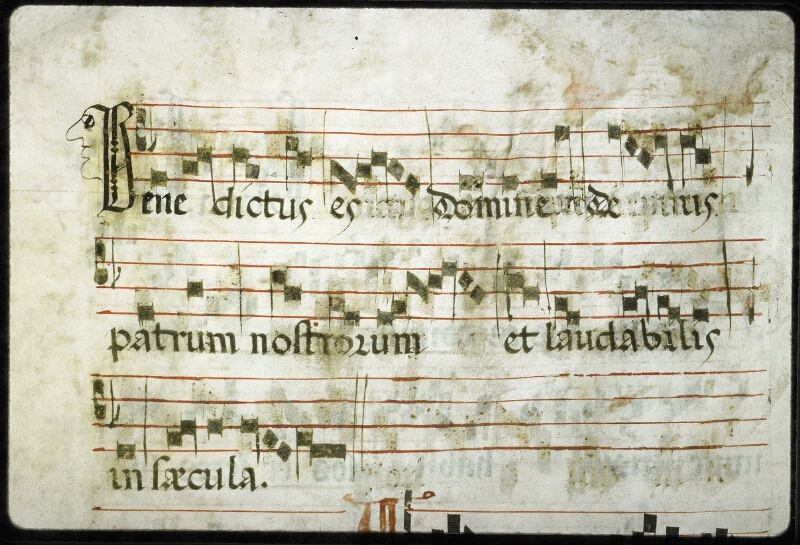 Bene dictus es Domine de
patrum nostrorum et laudabilis
in sæcula.